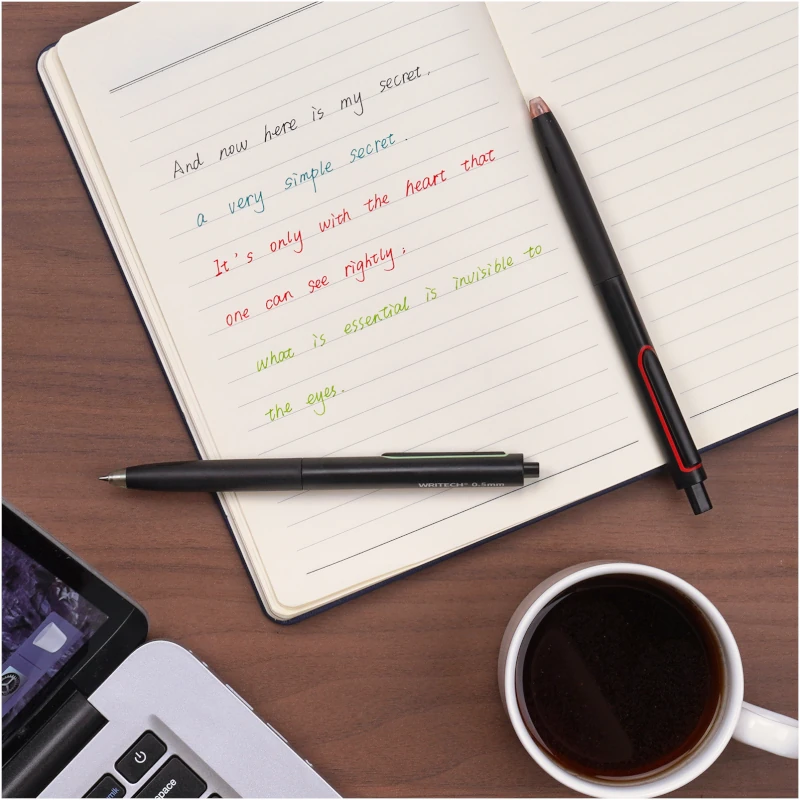 And now here is my secret,
a very simple secret.
It's only with the heart that
one can see rightly;
what is essential is invisible to
the eyes.
WRITECH® 0.5mm
space